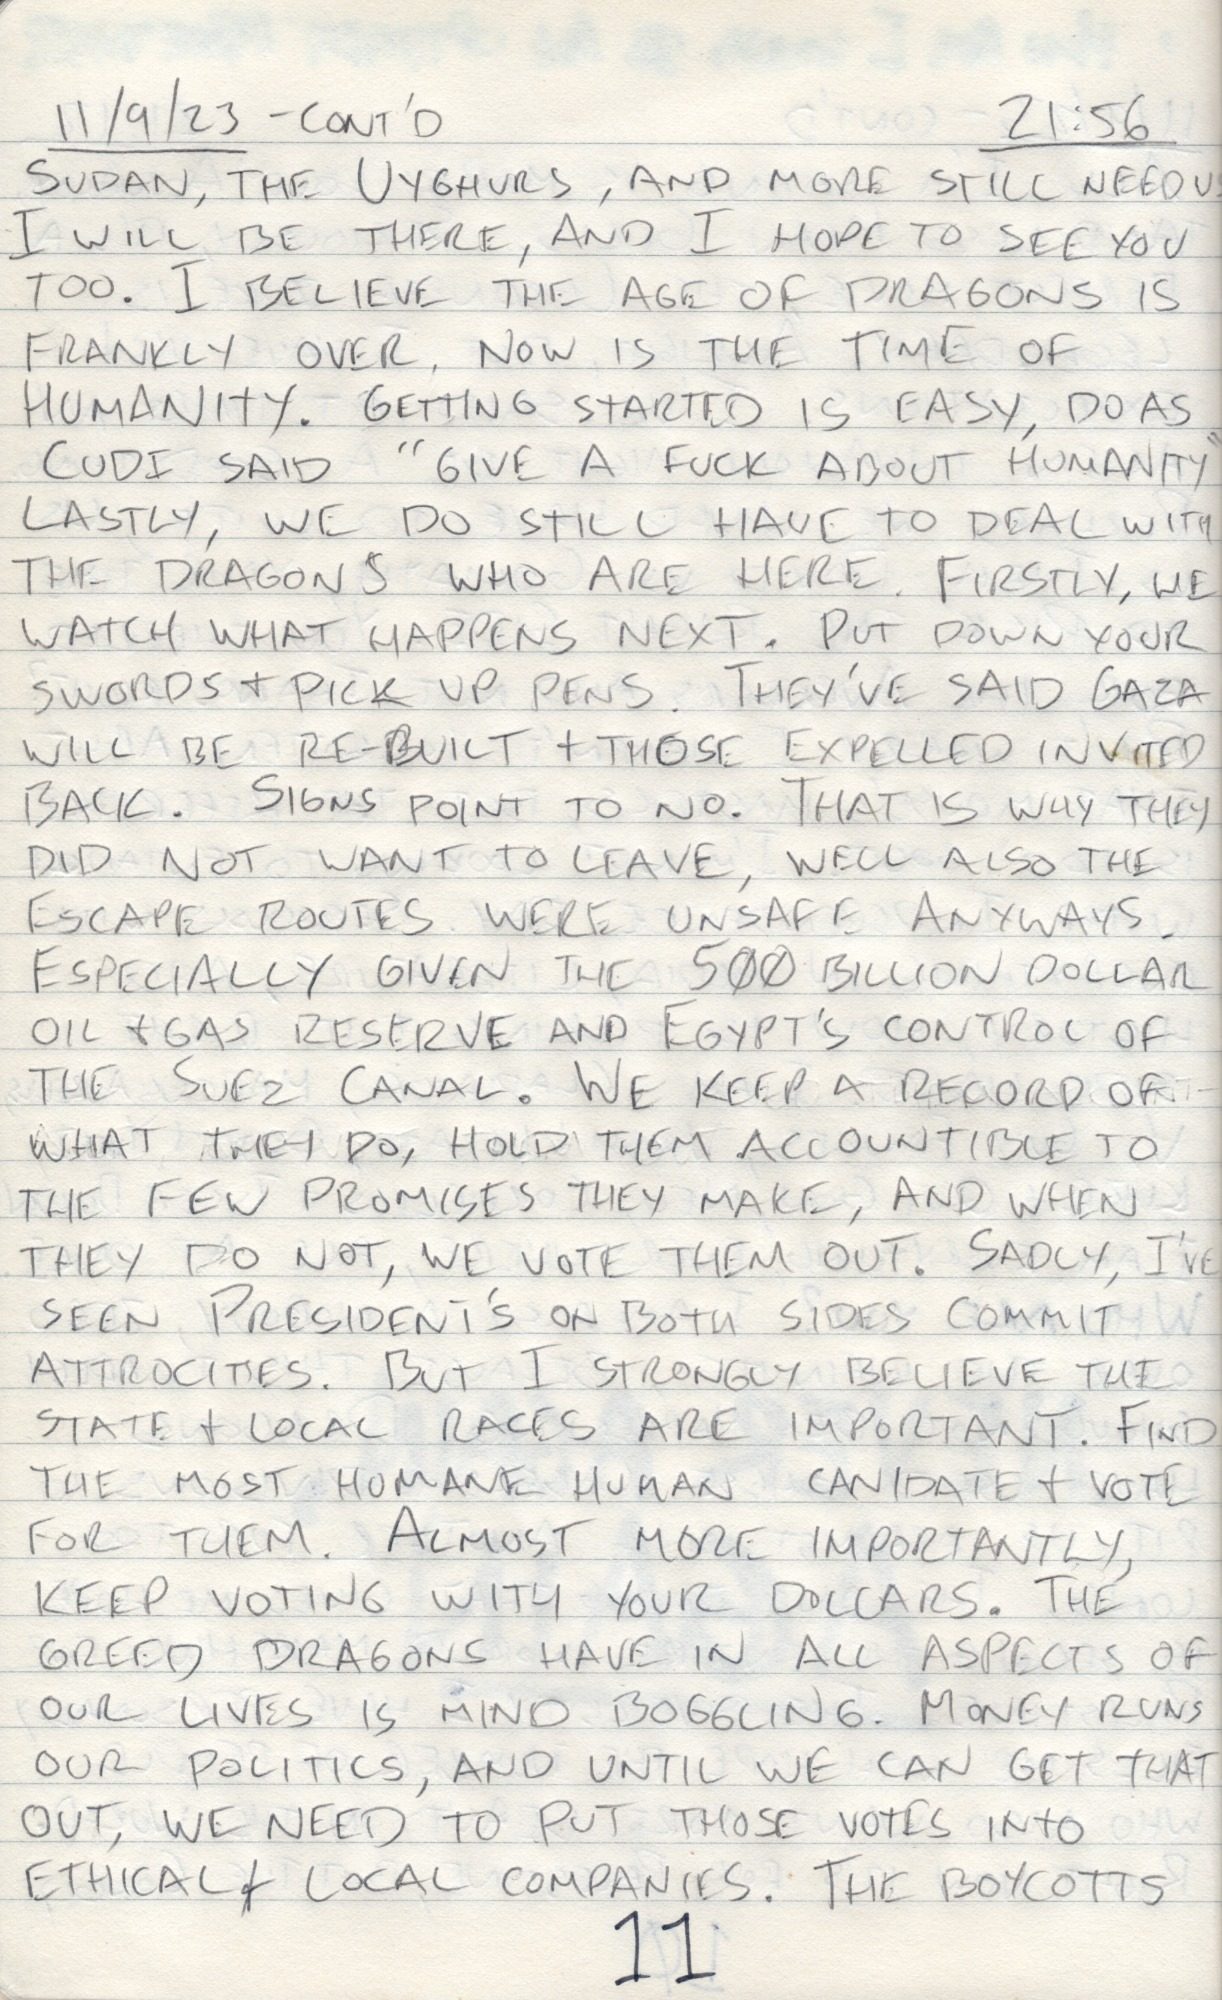 11/9/23 - CONT'D 21:56
SUDAN, THE UYGHURS, AND MORE STILL NEED US
I WILL BE THERE, AND I HOPE TO SEE YOU
TOO. I BELIEVE THE AGE OF DRAGONS IS
FRANKLY OVER. NOW IS THE TIME OF
HUMANITY. GETTING STARTED IS EASY, DO AS
CUDI SAID "GIVE A FUCK ABOUT HUMANITY"
LASTLY, WE DO STILL HAVE TO DEAL WITH
THE DRAGONS WHO ARE HERE. FIRSTLY, WE
WATCH WHAT HAPPENS NEXT. PUT DOWN YOUR
SWORDS + PICK UP PENS. THEY'VE SAID GAZA
WILL BE RE-BUILT + THOSE EXPELLED INVITED
BACK. SIGNS POINT TO NO. THAT IS WHY THEY
DID NOT WANT TO LEAVE, WELL ALSO THE
ESCAPE ROUTES WERE UNSAFE ANYWAYS.
ESPECIALLY GIVEN THE 500 BILLION DOLLAR
OIL + GAS RESERVE AND EGYPT'S CONTROL OF
THE SUEZ CANAL. WE KEEP A RECORD OF
WHAT THEY DO, HOLD THEM ACCOUNTIBLE TO
THE FEW PROMISES THEY MAKE, AND WHEN
THEY DO NOT, WE VOTE THEM OUT. SADLY, I'VE
SEEN PRESIDENT'S ON BOTH SIDES COMMIT
ATTROCITIES. BUT I STRONGLY BELIEVE THE
STATE + LOCAL RACES ARE IMPORTANT. FIND
THE MOST HUMANE HUMAN CANIDATE + VOTE
FOR THEM. ALMOST MORE IMPORTANTLY,
KEEP VOTING WITH YOUR DOLLARS. THE
GREED DRAGONS HAVE IN ALL ASPECTS OF
OUR LIVES IS MIND BOGGLING. MONEY RUNS
OUR POLITICS, AND UNTIL WE CAN GET THAT
OUT, WE NEED TO PUT THOSE VOTES INTO
ETHICAL + LOCAL COMPANIES. THE BOYCOTTS
11